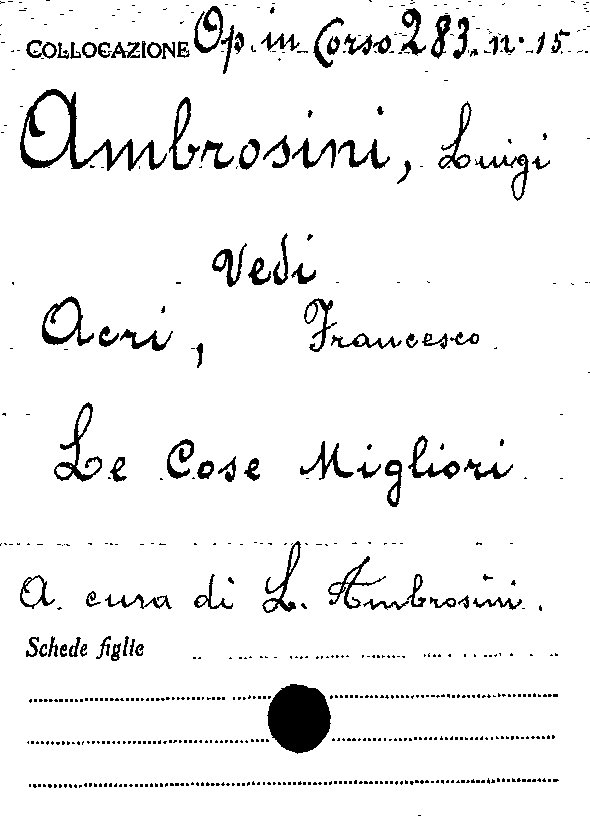 COLLOCAZIONE Op. in Corso 283. n. 15
Ambrosini, Luigi
Vedi
Acri, Francesco
Le Cose Migliori
A. cura di L. Ambrosini.
Schede figlie